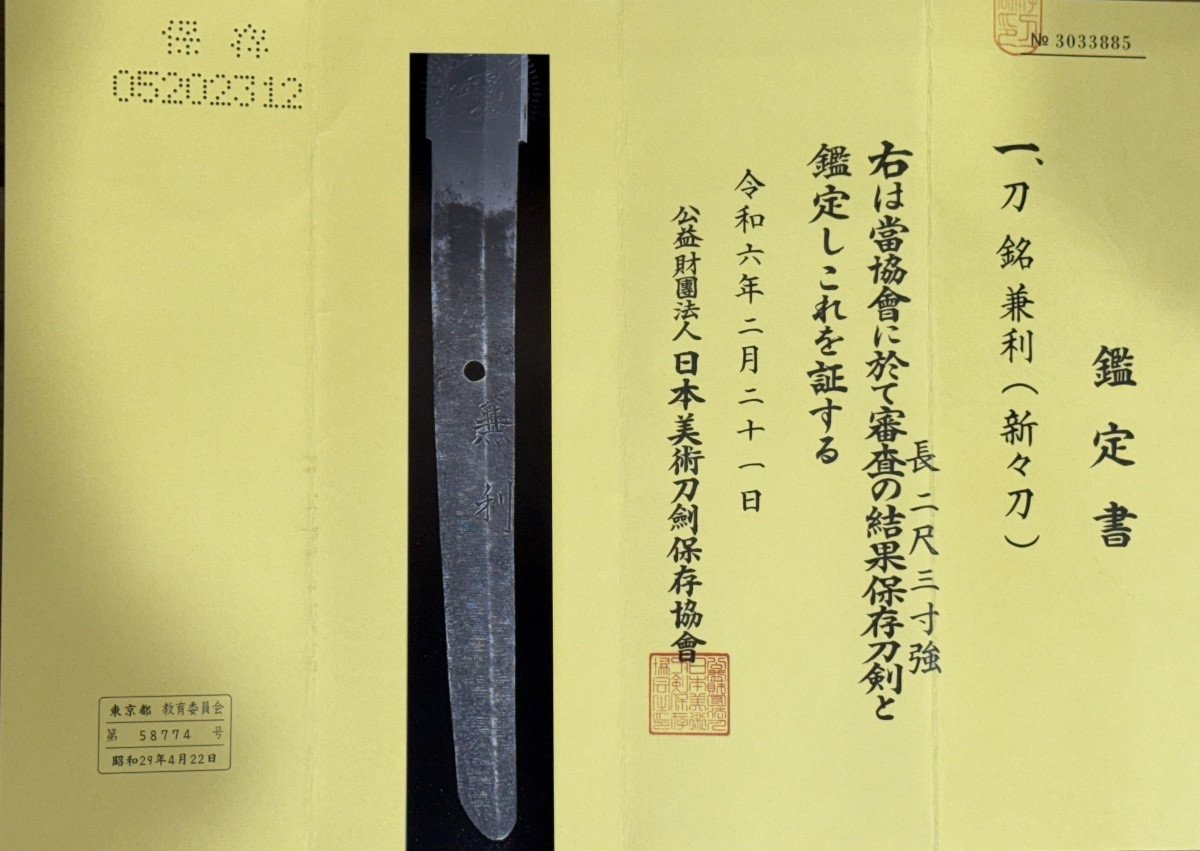 № 3033885
鑑定書
一、刀 銘 兼利(新々刀)
長二尺三寸強
右は當協會に於て審査の結果保存刀剣と
鑑定しこれを証する
令和六年二月二十一日
公益財團法人 日本美術刀劍保存協會
兼利
保存
05202312
東京都 教育委員会
第 58774 号
昭和29年4月22日